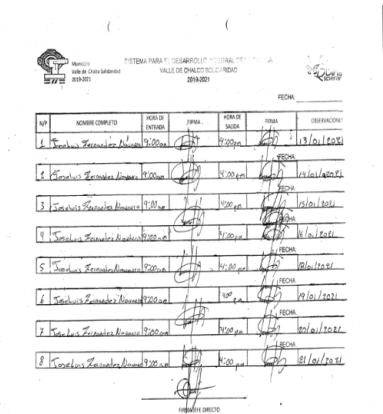 Municipio
Valle de Chalco Solidaridad
2019-2021
SISTEMA PARA EL DESARROLLO INTEGRAL DE LA
VALLE DE CHALCO SOLIDARIDAD
2019-2021
FECHA:
N/P NOMBRE COMPLETO HORA DE ENTRADA FIRMA HORA DE SALIDA FIRMA OBSERVACION
1 Joseluis Fernandez Navarro 9:00am 4:00pm 13/01/2021
FECHA:
2 Joseluis Fernandez Navarro 9:00am 4:00pm 14/01/2021
FECHA:
3 Joseluis Fernandez Navarro 9:00am 4:00pm 15/01/2021
FECHA:
4 Joseluis Fernandez Navarro 9:00am 4:00pm /01/2021
FECHA:
5 Joseluis Fernandez Navarro 9:00am 4:00pm /01/2021
FECHA:
6 Joseluis Fernandez Navarro 9:00am 4:00pm 19/01/2021
FECHA:
7 Joseluis Fernandez Navarro 9:00am 4:00pm 20/01/2021
FECHA:
8 Joseluis Fernandez Navarro 9:00am 4:00pm 21/01/2021
FIRMA JEFE DIRECTO